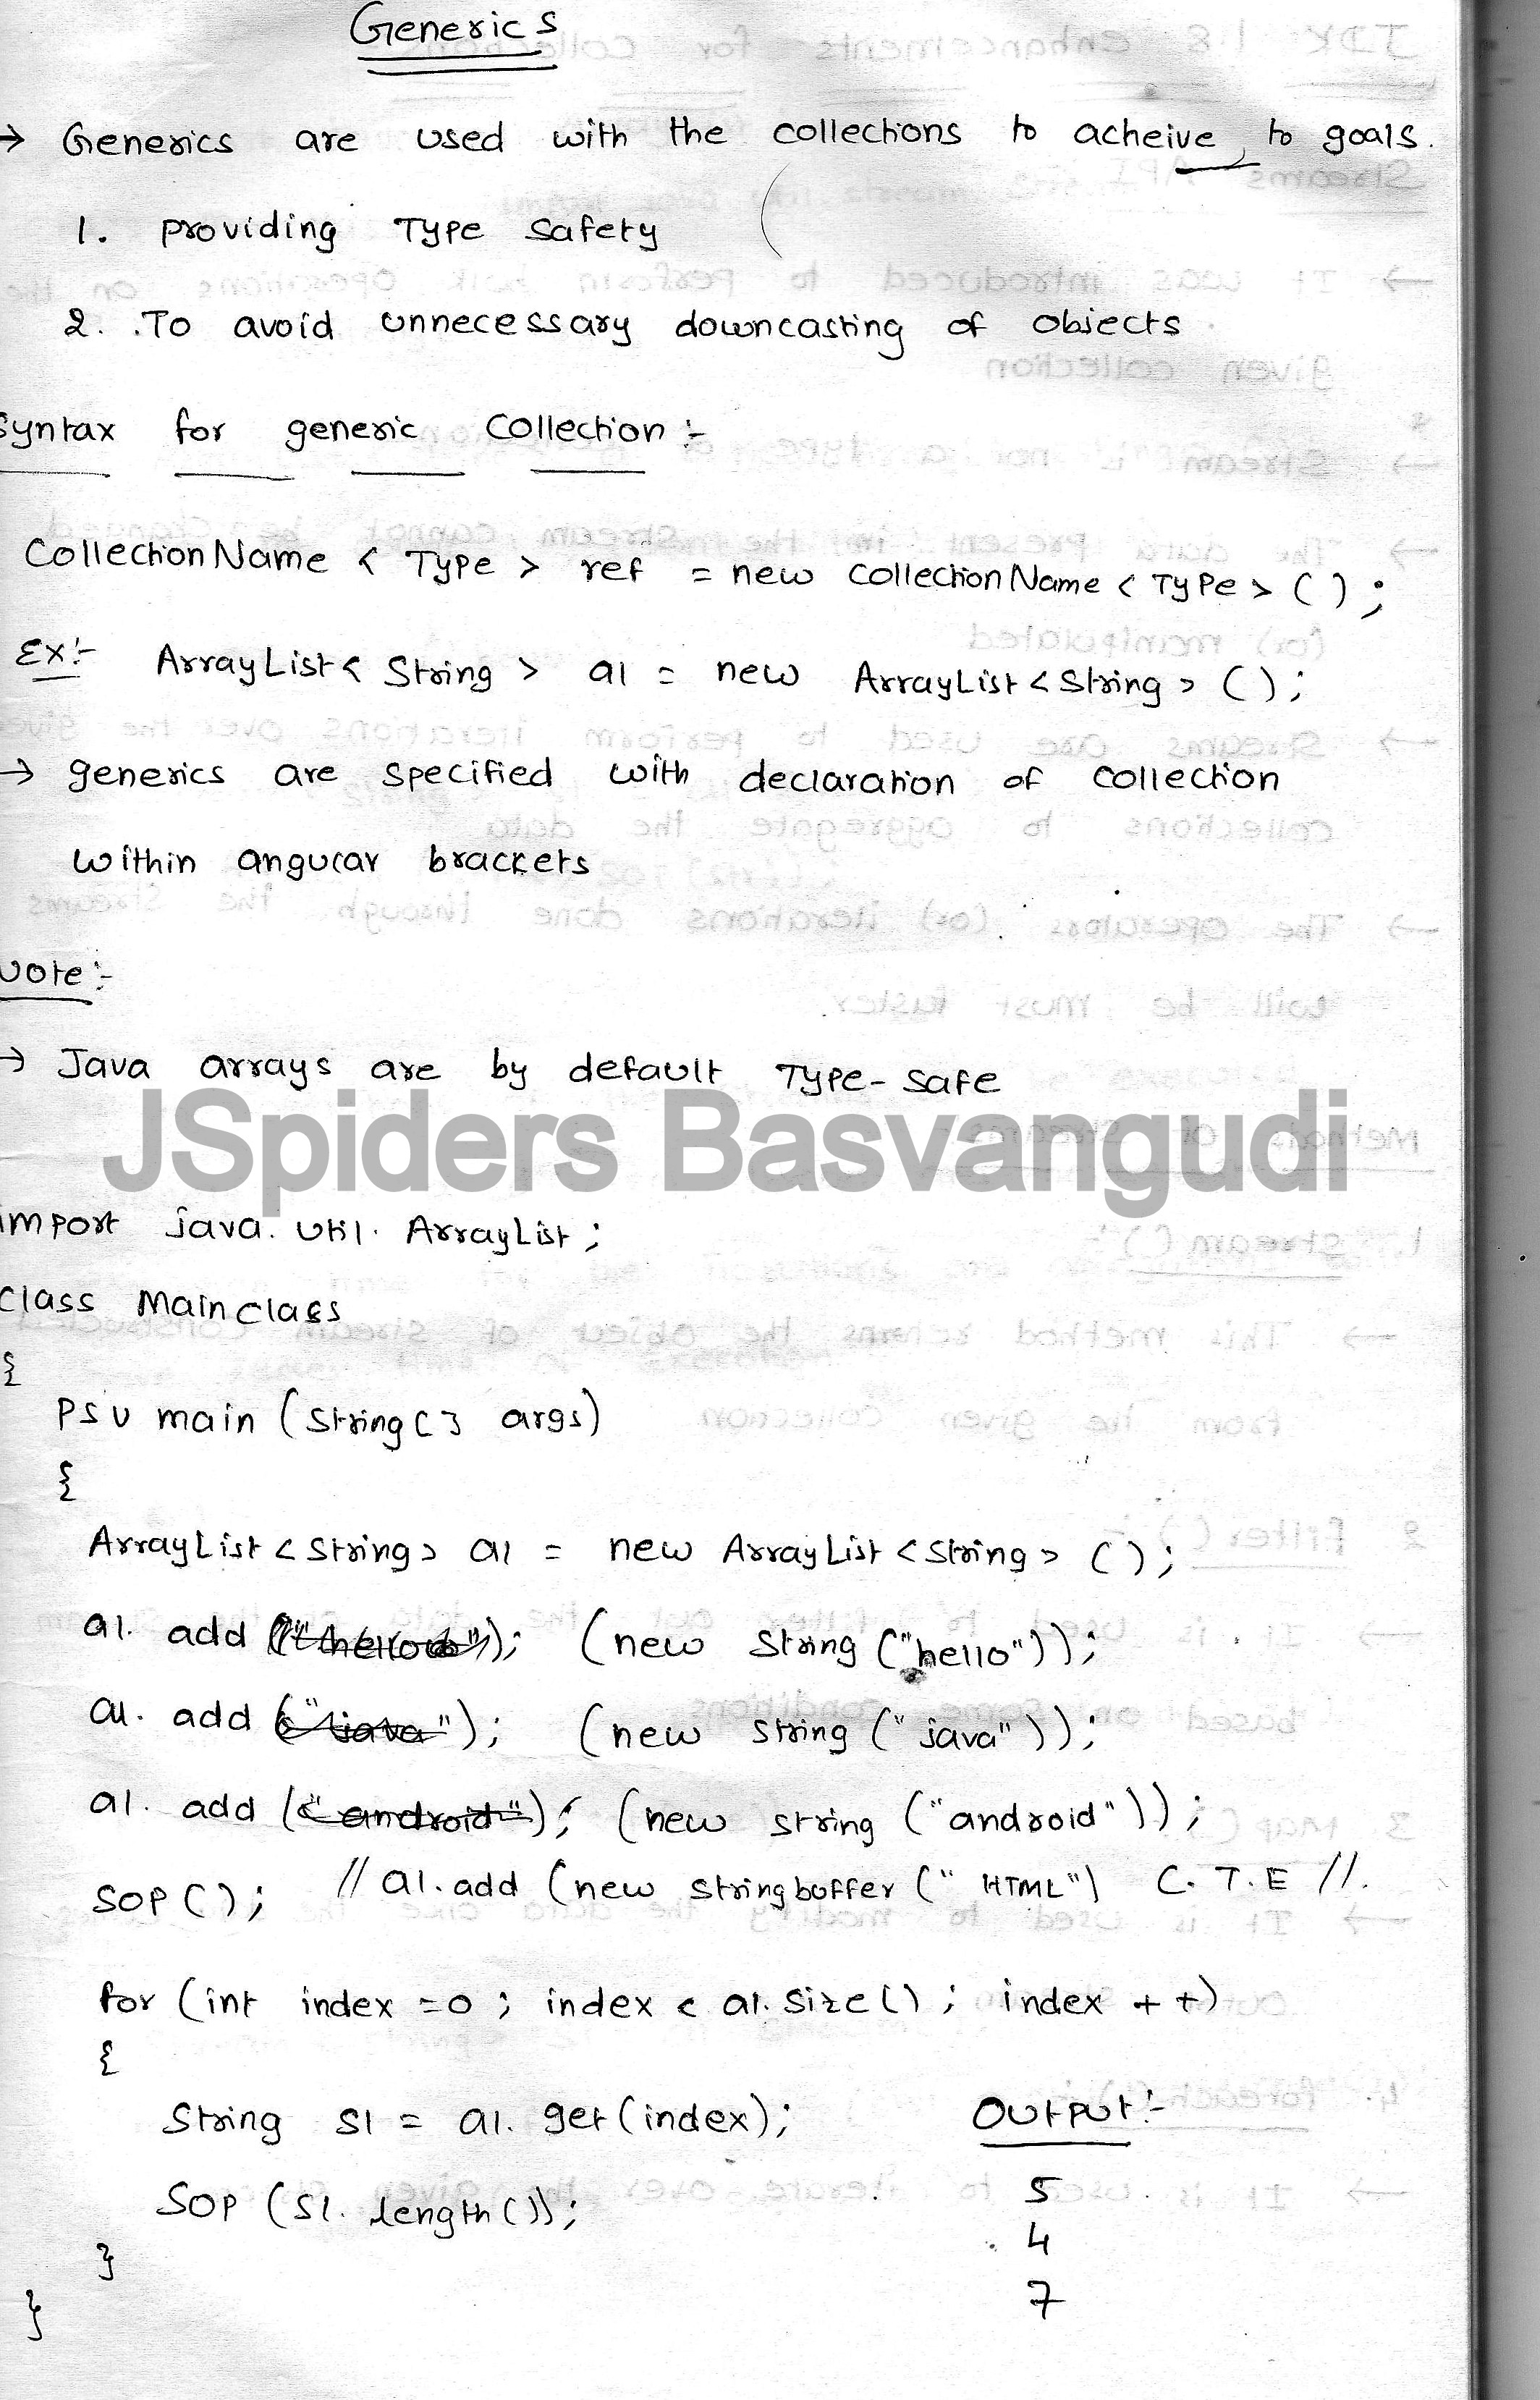 Generics
→ Generics are used with the collections to acheive to goals.
1. Providing Type safety
2. To avoid unnecessary downcasting of objects
Syntax for generic collection :-
CollectionName < Type > ref = new CollectionName < Type > ( ) ;
Ex:- ArrayList < String > al = new ArrayList < String > ( ) ;
→ generics are specified with declaration of collection
within angular brackets
Note :-
→ Java arrays are by default Type-safe
JSpiders Basvangudi
import java. util. ArrayList ;
Class Mainclass
{
PSV main ( String [ ] args)
{
ArrayList < String > al = new ArrayList < String > ( ) ;
al. add ("hello"); (new String ("hello") ) ;
al. add ("java"); (new String ("java") ) ;
al. add ("android"); (new string ("android") ) ;
SOP ( ) ; // al. add (new stringbuffer (" HTML") C. T. E //.
for (int index = 0 ; index < al. size ( ) ; index + +)
{
String s1 = al. get (index);
Output :-
SOP (s1. length ( ) ) ;
5
4
7
}
}